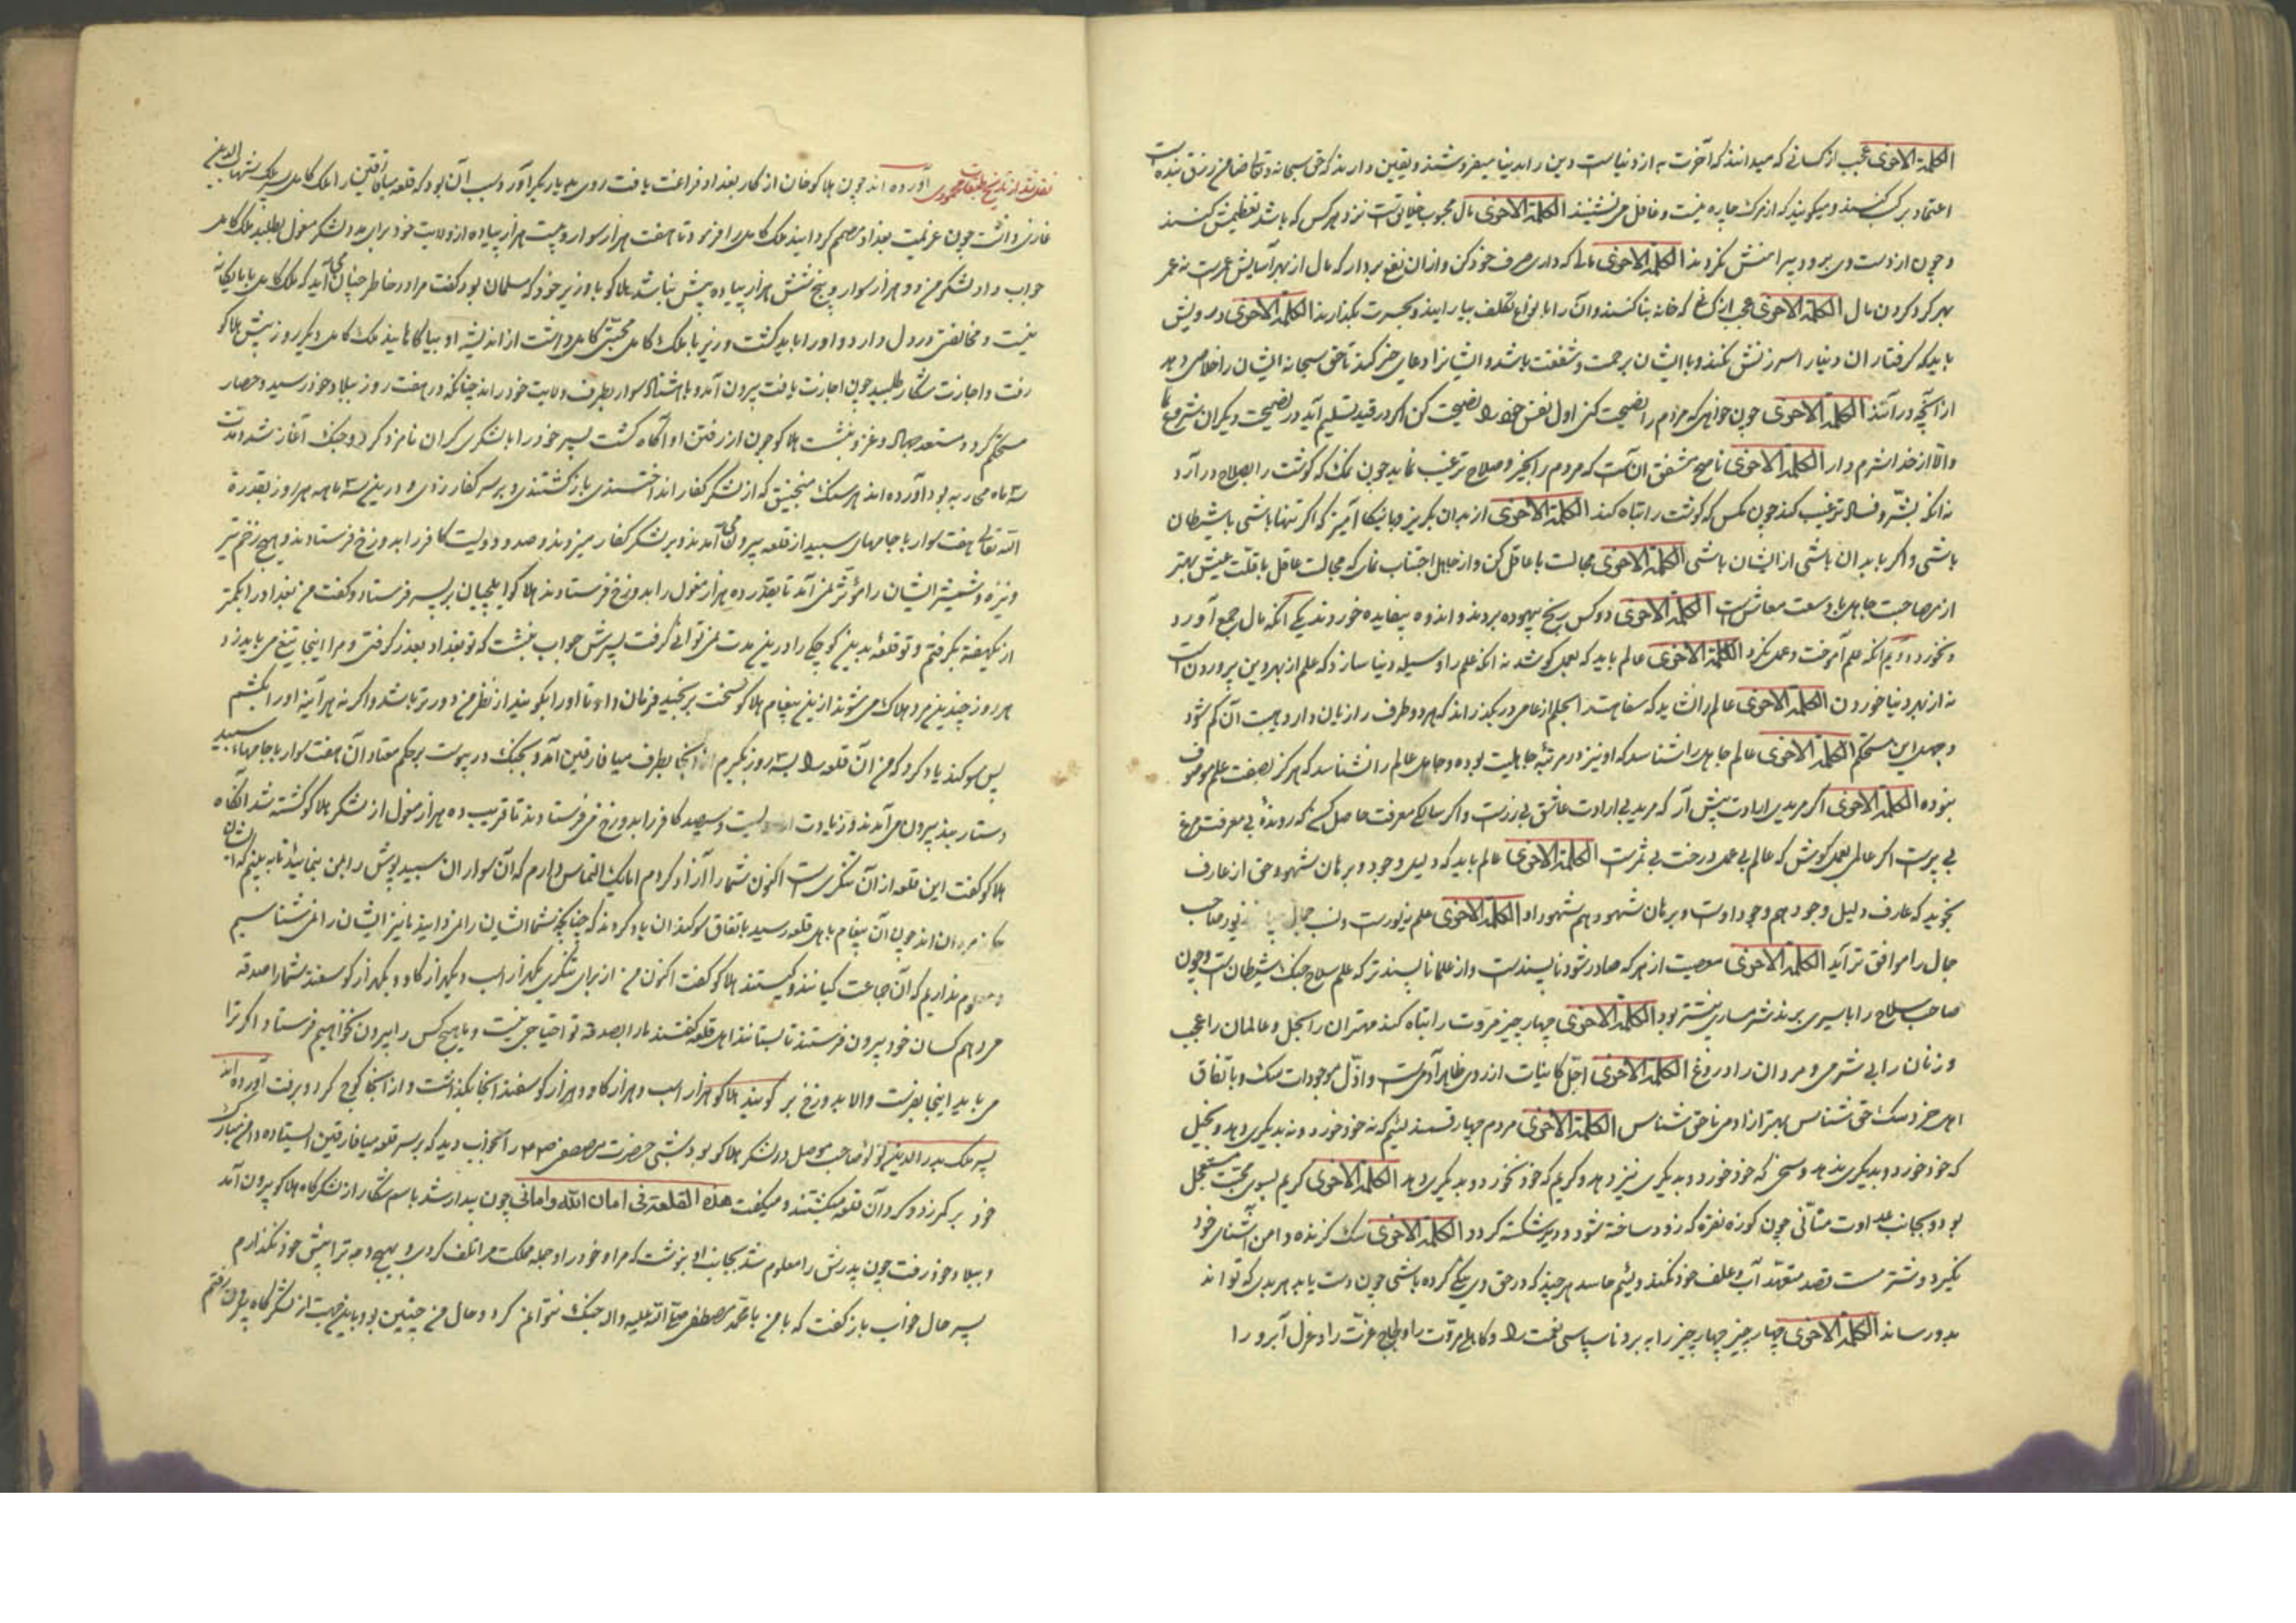 الکلمة الاخری عجب از کسانی که میدانند که آخرت به از دنیاست و دین را بدنیا میفروشند و یقین دارند که حق سبحانه و تعالی ضامن رزق بنده است
اعتماد بر کسب کنند و میکویند که از مرک چاره نیست و غافل می نشینند الکلمة الاخری مال محبوب خلایق است نزد هر کس که باشد تعظیمش کنند
و چون از دست وی برود پیرامنش نکردند الکلمة الاخری مالی که داری صرف خود کن و از ان نفع بردار که مال از بهر آسایش عمرست نه عمر
بهر کرد کردن مال الکلمة الاخری عجب از که خانه بنا کنند و آن را بانواع تکلف بیارایند و بحسرت بکذارند الکلمة الاخری درویش
باید که کرفتاران دنیا را سرزنش نکند و با ایشان برحمت و شفقت باشد و ایشانرا دعای خیر کند تا حق سبحانه ایشان را خلاصی دهد
از آنچه در آنند الکلمة الاخری چون خواهی که مردم را نصیحت کنی اول نفس خود را نصیحت کن اکر در قید تسلیم آید در نصیحت دیکران شروع نما
والا از خدا شرم دار الکلمة الاخری ناصح مشفق آنست که مردم را بخیر و صلاح ترغیب نماید چون نمک که کوشت را بصلاح در آرد
نه انکه بشر و فساد ترغیب کند چون مکس که کوشت را تباه کند الکلمة الاخری از بدان بکریز و با نیکان آمیز که اکر تنها باشی با شیطان
باشی و اکر با بدان باشی از ایشان باشی الکلمة الاخری مجالست با عاقل کن و از جاهل اجتناب نمای که مجالست عاقل با قلت عیش بهتر
از مصاحبت جاهل با وسعت معاش است الکلمة الاخری دو کس رنج بیهوده بردند و اندوه بیفایده خوردند یکی آنکه مال جمع آورد
و نخورد دویم آنکه علم آموخت و عمل نکرد الکلمة الاخری عالم باید که بعمل کوشد نه انکه علم را وسیله دنیا سازد که علم از بهر دین پروردن است
نه از بهر دنیا خوردن الکلمة الاخری عالم را نشاید که سفاهت را بحلم از عامی در بکذراند که هر دو طرف را زیان دارد هیبت آن کم شود
و جهل این مستحکم الکلمة الاخری عالم جاهل را شناسد که او نیز در مرتبه جاهلیت بوده و جاهل عالم را نشناسد که هرکز بصفت علم موصوف
نبوده الکلمة الاخری اکر مریدی ارادت پیش آر که مرید بی ارادت عاشق بی زرست و اکر سالکی معرفت حاصل کن که رونده بی معرفت مرغ
بی پرست اکر عالمی بعمل کوش که عالم بی عمل درخت بی ثمرست الکلمة الاخری عالم باید که دلیل وجود و برهان شهود حق از عارف
نجوید که عارف دلیل وجود هم وجود اوست و برهان شهود هم شهود او الکلمة الاخری علم زیورست و نسب جمال زیور صاحب
جمال را موافق تر آید الکلمة الاخری معصیت از هر که صادر شود ناپسندست و از علما ناپسندتر که علم سلاح جنک شیطانست و چون
صاحب سلاح را باسیری برند شرمساری بیشتر بود الکلمة الاخری چهار چیز مروت را تباه کند مهتران را بخل و عالمان را عجب
و زنان را بی شرمی و مردان را دروغ الکلمة الاخری اجل کاینات از روی ظاهر آدمیست و اذل موجودات سک و باتفاق
اهل خرد سک حق شناس بهتر از آدمی ناحق شناس الکلمة الاخری مردم چهار قسمند لئیم که نه خود خورد و نه بدیکری دهد و بخیل
که خود خورد و بدیکری ندهد و سخی که خود خورد و بدیکری نیز دهد و کریم که خود نخورد و بدیکری دهد الکلمة الاخری کریم بسوی محبت مستعجل
بود و بجانب عداوت متأنی چون کوزه نقره که زود ساخته شود و دیر شکسته کردد الکلمة الاخری سک کزنده دامن آشنای خود
نکیرد و شتر مست قصد متعهد آب و علف خود نکند و لئیم حاسد هر چند که در حق وی نیکی کرده باشی چون دست یابد هر بدی که تواند
بدو رساند الکلمة الاخری چهار چیز چهار چیز را ببرد ناسپاسی نعمت را و کاهلی مروت را و لجاج عزت را و هزل آبرو را
نقل شد از تاریخ طبقات محمودی آورده اند چون هلاکو خان از کار بغداد فراغت یافت روی بدیار بکر آورد و سبب آن بود که قلعه میافارقین را ملک کامل پسر ملک شهاب الدین
غازی داشت چون عزیمت بغداد مصمم کردانید ملک کامل را فرمود تا هفت هزار سوار و بیست هزار پیاده از ولایت خود برای مدد لشکر مغول بطلبد ملک کامل
جواب داد لشکر من دو هزار سوار و پنج شش هزار پیاده بیش نباشد هلاکو با وزیر خود که مسلمان بود کفت مرا در خاطر چنان می آید که ملک کامل با ما یکانه
نیست و مخالفتی در دل دارد و او را باید کشت وزیر با ملک کامل محبتی کامل داشت از اندیشه او بیا کاهانید ملک کامل دیکر روز پیش هلاکو
رفت و اجازت شکار طلبید چون اجازت یافت بیرون آمد و با هشتاد سوار بطرف ولایت خود راند چنانکه در هفت روز ببلاد خود رسید و حصار
مستحکم کرد و مستعد جهاد و غزو بنشست هلاکو چون از رفتن او آکاه کشت پسر خود را با لشکری کران نامزد کرد و جنک آغاز شد مدت
سه ماه محاربه بود آورده اند هر سنک منجنیق که از لشکر کفار انداختندی باز کشتندی و بر سر کفار زدی و در این سه ماه هر روز بقدرة
الله تعالی هفت سوار با جامهای سپید از قلعه بیرون می آمدند و بر لشکر کفار میزدند و صد و دویست کافر را بدوزخ فرستادند و هیچ زخم تیر
و نیزه و شمشیر ایشان را مؤثر نمی آمد تا بقدر ده هزار مغول را بدوزخ فرستادند هلاکو ایلچیان بر پسر فرستاد و کفت من بغداد را بکمتر
از یکهفته بکرفتم و تو قلعه بدین کوچکی را در این مدت نمی توانی کرفت پسرش جواب نبشت که تو بغداد بعذر کرفتی و مرا اینجا تیغ می باید زد و
هر روز چندین مرد هلاک می شوند از این پیغام هلاکو سخت برنجید فرمان داد تا او را بکویند از نظر من دورتر باشد و اکر نه هر آینه او را بکشم
پس سوکند یاد کرد که من آن قلعه را بسه روز بکیرم از آنجا بطرف میافارقین آمد و بجنک در پیوست بر حکم معتاد آن هفت سوار با جامهای سپید
دستار بند بیرون می آمدند و زیادت از دویست و سیصد کافر را بدوزخ می فرستادند تا قریب ده هزار مغول از لشکر هلاکو کشته شد آنکاه
هلاکو کفت این قلعه از آن تنکری ست اکنون شما را آزاد کردم اما یک التماس دارم که آن سواران سپید پوش را بمن بنمائید تا ببینم که ایشان
مردان اند چون آن پیغام باهل قلعه رسید باتفاق سوکندان یاد کردند که چنانچه شما ایشان را نمی دانید ما نیز ایشان را نمی شناسیم
و معلوم نداریم که آن جماعت کیانند و کیستند هلاکو کفت اکنون من از برای تنکری یکهزار اسب و یکهزار کاو و یکهزار کوسفند شما را صدقه
می دهم کسان خود بیرون فرستند تا بستانند اهل قلعه کفتند ما را بصدقه تو احتیاجی نیست و ما هیچ کس را بیرون نخواهیم فرستاد اکر ترا
می باید اینجا بفرست والا بدوزخ بر کویند هلاکو هزار اسب و هزار کاو و هزار کوسفند آنجا بکذاشت و از آنجا کوچ کرد و برفت آورده اند
پسر ملک بدر الدین لؤلؤ صاحب موصل در لشکر هلاکو بود شبی حضرت مصطفی را بخواب دید که بر سر قلعه میافارقین ایستاده دامن مبارک
خود بر کرد کرد آن قلعه میکشند و میکفت هذه القلعة فی امان الله وامانی چون بیدار شد باسم شکار از لشکرکاه هلاکو بیرون آمد
و ببلاد خود رفت چون پدرش را معلوم شد بجانب او بنوشت که مرا و خود را و جمله مملکت مرا تلف کردی و بهیچ وجه ترا پیش خود نکذارم
پسر حال خواب باز کفت که با من با محمد مصطفی صلی الله علیه و اله جنک نتوانم کرد و حال من چنین بود باین جهت از لشکرکاه بیرون رفتم